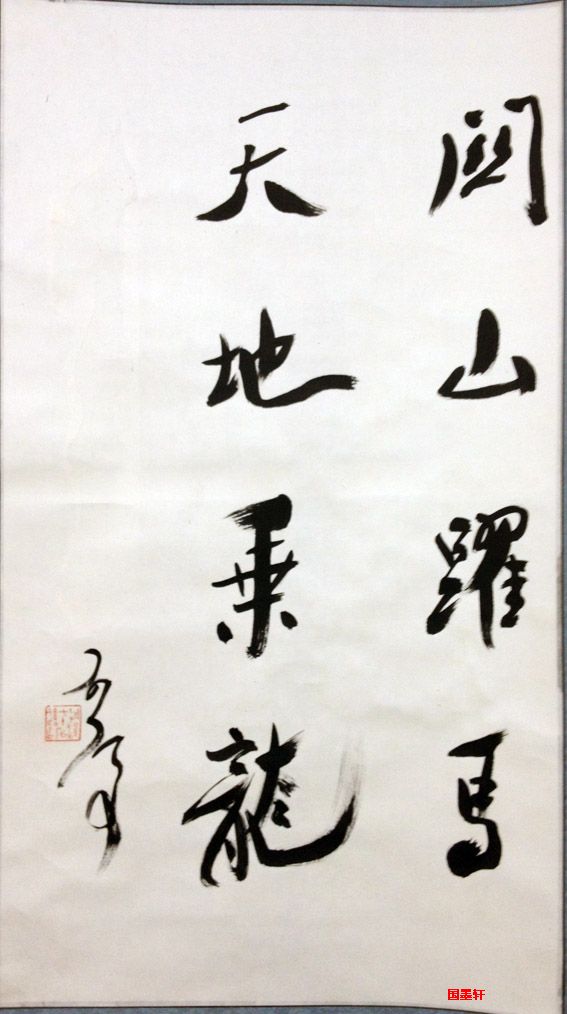 関山躍馬
天地乗龍
国墨轩